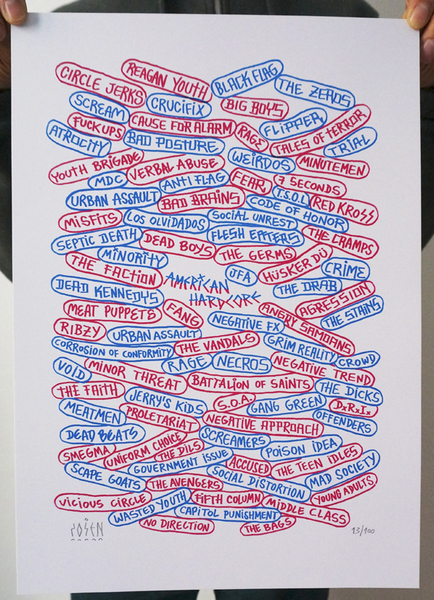 REAGAN YOUTH
CIRCLE JERKS
BLACK FLAG
THE ZEROS
SCREAM
CRUCIFIX
BIG BOYS
FUCK UPS
CAUSE FOR ALARM
RAGE
FLIPPER
TALES OF TERROR
ATROCITY
BAD POSTURE
TRIAL
YOUTH BRIGADE
VERBAL ABUSE
WEIRDOS
MINUTEMEN
MDC
ANTI FLAG
FEAR
7 SECONDS
URBAN ASSAULT
BAD BRAINS
T.S.O.L
RED KROSS
CODE OF HONOR
MISFITS
LOS OLVIDADOS
SOCIAL UNREST
THE CRAMPS
SEPTIC DEATH
DEAD BOYS
FLESH EATERS
MINORITY
THE GERMS
HÜSKER DÜ
CRIME
THE FACTION
AMERICAN
HARDCORE
JFA
THE DRAB
DEAD KENNEDYS
AGRESSION
MEAT PUPPETS
FANG
NEGATIVE FX
ANGRY SAMOANS
THE STAINS
RIBZY
URBAN ASSAULT
THE VANDALS
GRIM REALITY
CROWD
CORROSION OF CONFORMITY
RAGE
NECROS
NEGATIVE TREND
VOID
MINOR THREAT
BATTALION OF SAINTS
THE DICKS
THE FAITH
JERRY'S KIDS
S.O.A.
GANG GREEN
D.R.I.
MEATMEN
PROLETARIAT
NEGATIVE APPROACH
OFFENDERS
DEAD BEATS
SCREAMERS
POISON IDEA
SMEGMA
UNIFORM CHOICE
THE DILS
GOVERNMENT ISSUE
ACCUSED
THE TEEN IDLES
SCAPE GOATS
THE AVENGERS
SOCIAL DISTORTION
MAD SOCIETY
VICIOUS CIRCLE
WASTED YOUTH
FIFTH COLUMN
MIDDLE CLASS
YOUNG ADULTS
CAPITOL PUNISHMENT
NO DIRECTION
THE BAGS
13/100